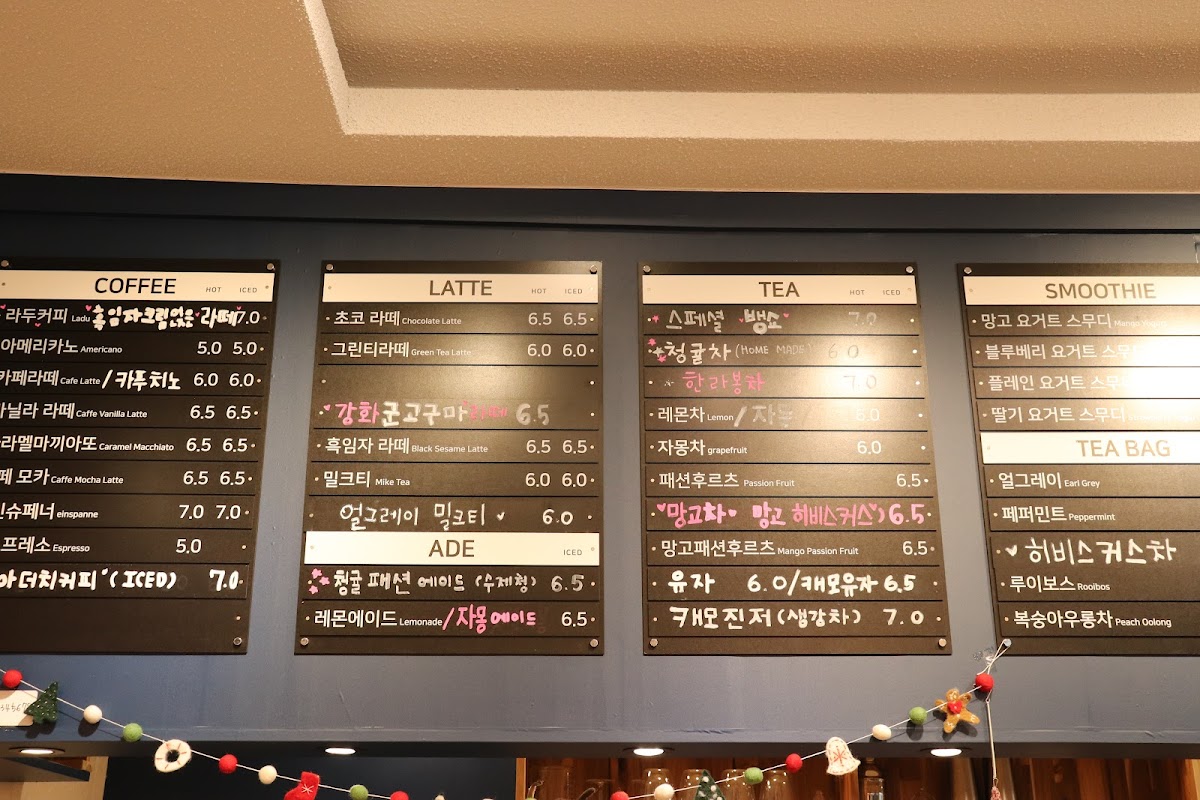 COFFEE HOT ICED
라두커피 Ladu 흑임자크림얹은 라떼 7.0
아메리카노 Americano 5.0 5.0
카페라떼 Cafe Latte / 카푸치노 6.0 6.0
닐라 라떼 Caffe Vanilla Latte 6.5 6.5
라멜마끼아또 Caramel Macchiato 6.5 6.5
모카 Caffe Mocha Latte 6.5 6.5
슈페너 einspanne 7.0 7.0
프레소 Espresso 5.0
더치커피 (ICED) 7.0
LATTE HOT ICED
초코 라떼 Chocolate Latte 6.5 6.5
그린티라떼 Green Tea Latte 6.0 6.0
강화군고구마라떼 6.5
흑임자 라떼 Black Sesame Latte 6.5 6.5
밀크티 Mike Tea 6.0 6.0
얼그레이 밀크티 6.0
ADE ICED
청귤패션에이드 (수제청) 6.5
레몬에이드 Lemonade / 자몽에이드 6.5
TEA HOT ICED
스페셜 뱅쇼 7.0
청귤차 (HOME MADE) 6.0
한라봉차 7.0
레몬차 Lemon / 6.0
자몽차 grapefruit 6.0
패션후르츠 Passion Fruit 6.5
망고차 망고 히비스커스 6.5
망고패션후르츠 Mango Passion Fruit 6.5
유자 6.0/캐모유자 6.5
캐모진저(생강차) 7.0
SMOOTHIE
망고 요거트 스무디 Mango
블루베리 요거트 스무
플레인 요거트 스무
딸기 요거트 스무디
TEA BAG
얼그레이 Earl Grey
페퍼민트 Peppermint
히비스커스차
루이보스 Rooibos
복숭아우롱차 Peach Oolong